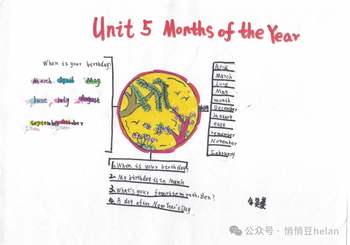 Unit 5 Months of the Year
When is your birthday?
March April May
June July August
September
April
March
June
May
month
December
August
remember
November
February
1. When is your birthday?
2. My birthday is in March
3. What's your favourite month, Ben?
4. A day after New Year's Day
公众号 · 悄悄豆helan